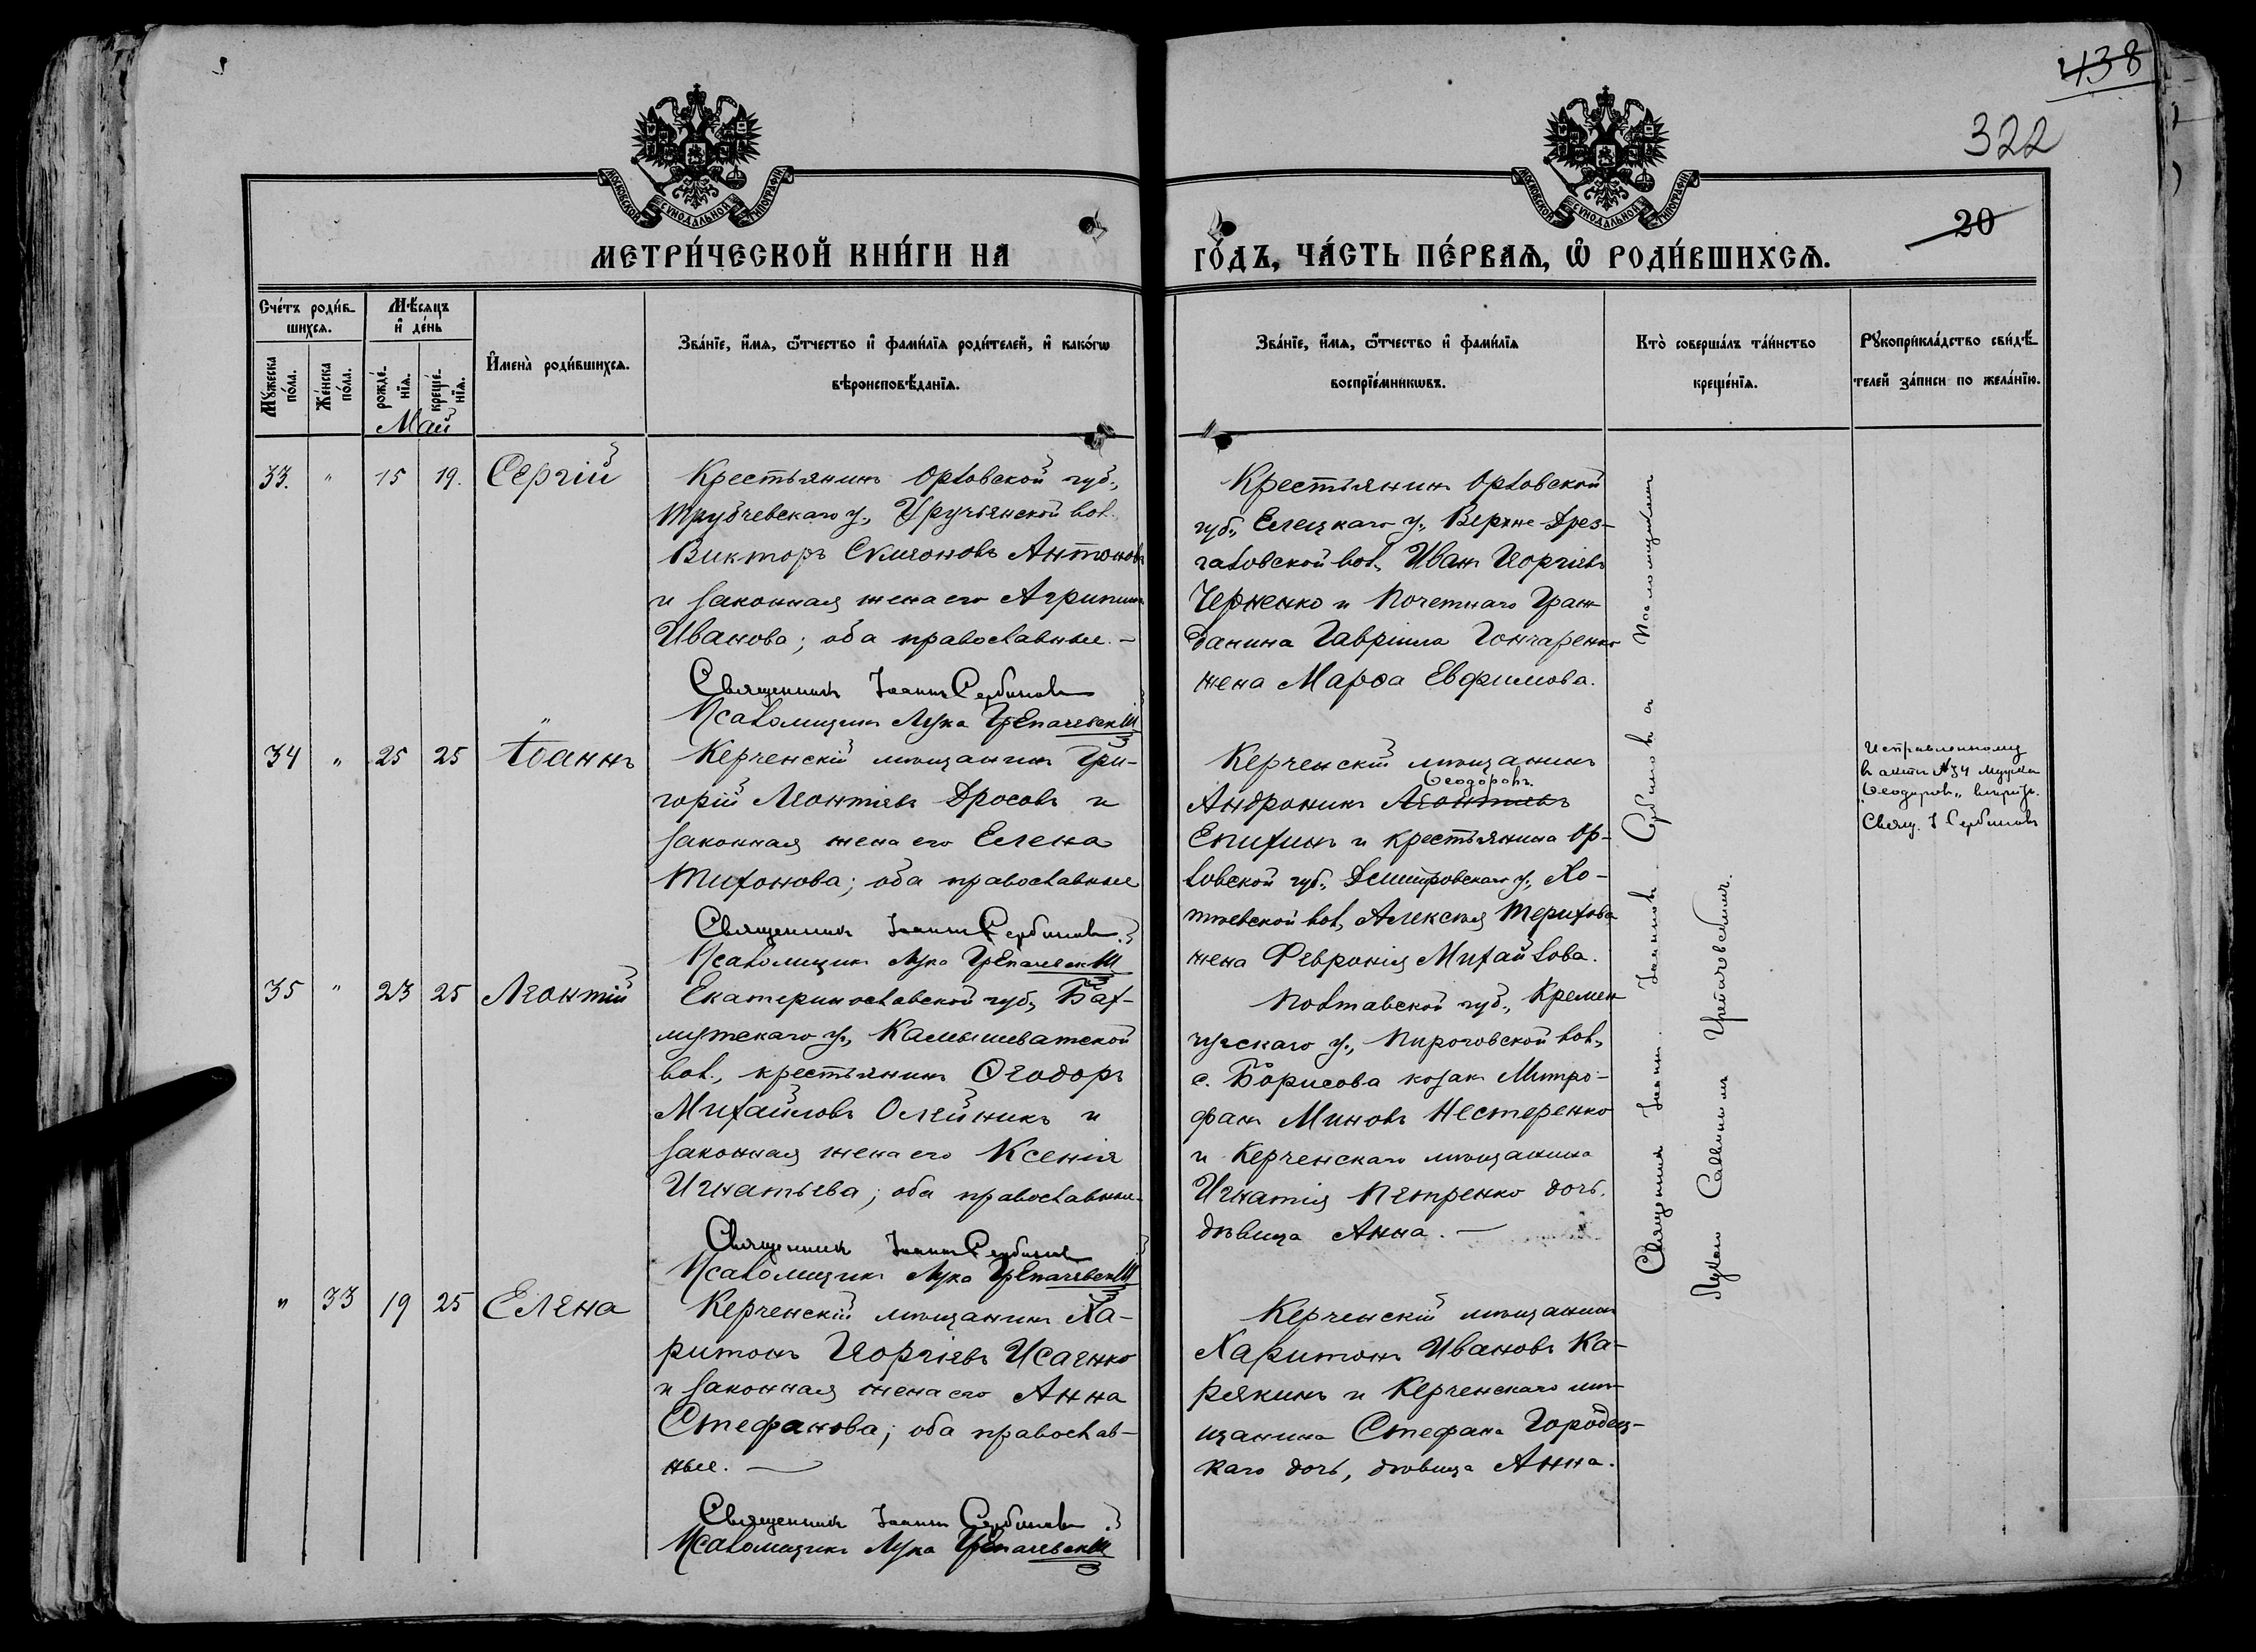 438
322
МОСКОВСКОЙ СѴНОДАЛЬНОЙ ТИПОГРАФІИ
МОСКОВСКОЙ СѴНОДАЛЬНОЙ ТИПОГРАФІИ
20
МЕТРИ́ЧЕСКОЙ КНИ́ГИ НА
ГО́ДЪ, ЧА́СТЬ ПЕ́РВАѦ, Ѡ҆ РОДИ́ВШИХСѦ.
Сче́тъ роди́в-
шихсѧ.
Мꙋ́жеска по́ла.
Же́нска по́ла.
Мѣ́сѧцъ
и҆ де́нь
рожде́-
нїѧ.
креще́-
нїѧ.
Май
И҆мена̀ роди́вшихсѧ.
Зва́нїе, и҆́мѧ, ѻ҆́тчество и҆ фами́лїѧ роди́телей, и҆ како́гѡ
вѣроисповѣ́данїѧ.
Зва́нїе, и҆́мѧ, ѻ҆́тчество и҆ фами́лїѧ
воспрїе́мникѡвъ.
Кто̀ соверша́лъ та́инство
креще́нїѧ.
Рꙋкоприкла́дство свидѣ́-
телей за́писи по жела́нїю.
33. " 15 19. Сергій
Крестьянинъ Орловской губ.,
Трубчевскаго у., Уручьянской вол.
Викторъ Симоновъ Антоновъ
и законная жена его Агрипина
Иванова; оба православные. –
Священникъ Іоаннъ Сербиновъ
Псаломщикъ Лука Цѣпачевскій
Крестьянинъ Орловской
губ., Елецкаго у., Верхне-Дрез-
галовской вол. Иванъ Георгіевъ
Черненко и Почетнаго Граж-
данина Гавріила Гончаренко
жена Марѳа Евфимова.
34 " 25 25 Іоаннъ
Керченскій мѣщанинъ Гри-
горій Леонтіевъ Дросовъ и
законная жена его Елена
Тихонова; оба православные
Священникъ Іоаннъ Сербиновъ
Псаломщикъ Лука Цѣпачевскій
Керченскій мѣщанинъ
Ѳеодоровъ
Андроникъ Леонтіевъ
Епихинъ и крестьянина Ор-
ловской губ., Дмитровскаго у., Хо-
тѣевской вол. Алексѣя Терихова
жена Февронія Михайлова.
Исправленному
въ актѣ №34 мужска
"Ѳеодоровъ" вѣрить.
Свящ. І Сербиновъ
35 " 23 25 Леонтій
Екатеринославской губ., Бах-
мутскаго у., Камышеватской
вол., крестьянинъ Ѳеодоръ
Михайловъ Олейникъ и
законная жена его Ксенія
Игнатьева; оба православные.
Священникъ Іоаннъ Сербиновъ
Псаломщикъ Лука Цѣпачевскій
Полтавской губ., Кремен-
чугскаго у., Пироговской вол.,
с. Борисова козакъ Митро-
фанъ Миновъ Нестеренко
и Керченскаго мѣщанина
Игнатія Петренко дочь,
дѣвица Анна. –
" 33 19 25 Елена
Керченскій мѣщанинъ Ха-
ритонъ Георгіевъ Исаенко
и законная жена его Анна
Стефанова; оба православ-
ные. –
Священникъ Іоаннъ Сербиновъ
Псаломщикъ Лука Цѣпачевскій
Керченскій мѣщанинъ
Харитонъ Ивановъ Ка-
рякинъ и Керченскаго мѣ-
щанина Стефана Городец-
каго дочь, дѣвица Анна.
Священникъ Іоаннъ Іоанновъ Сербиновъ съ Псаломщикомъ
Лукою